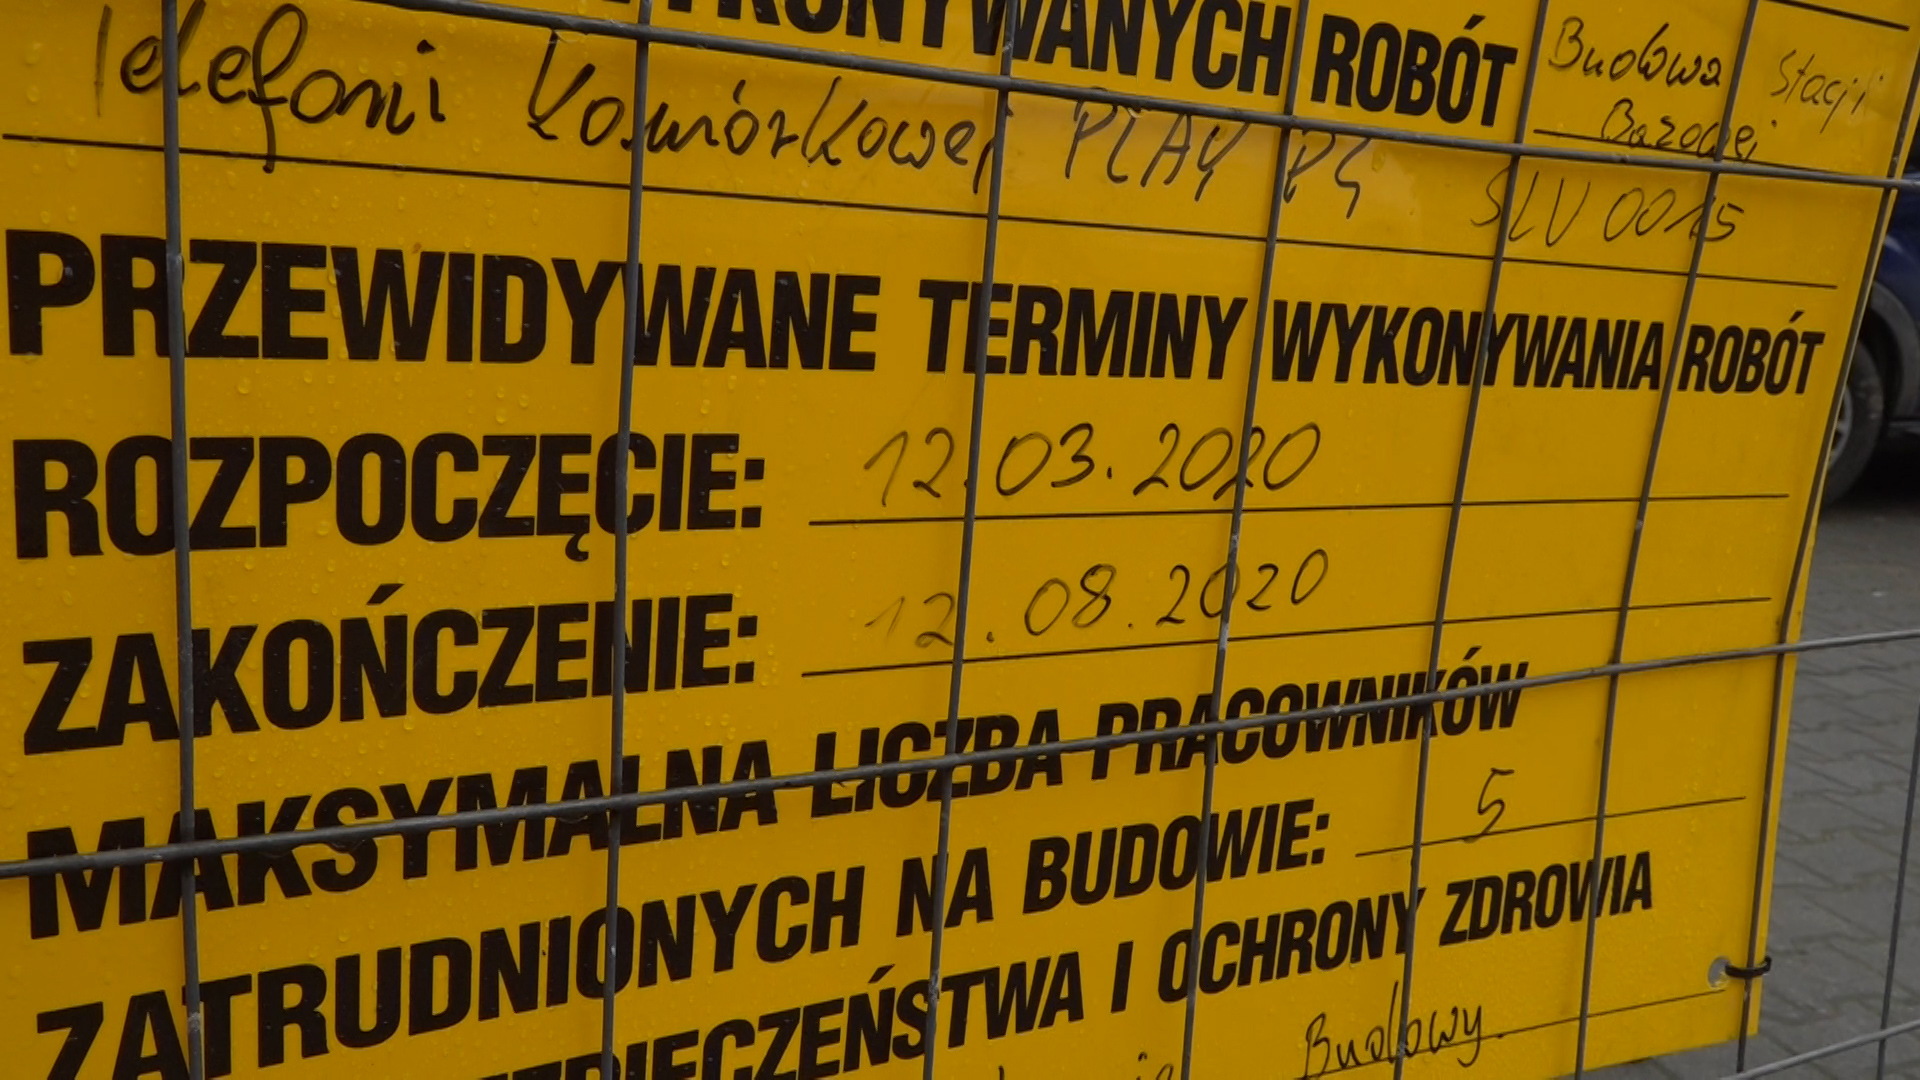 WYKONYWANYCH ROBÓT Budowa Stacji
Bazowej
Telefonii Komórkowej PLAY P4 SLU 0015
PRZEWIDYWANE TERMINY WYKONYWANIA ROBÓT
ROZPOCZĘCIE: 12.03.2020
ZAKOŃCZENIE: 12.08.2020
MAKSYMALNA LICZBA PRACOWNIKÓW
ZATRUDNIONYCH NA BUDOWIE: 5
BEZPIECZEŃSTWA I OCHRONY ZDROWIA
Budowy.